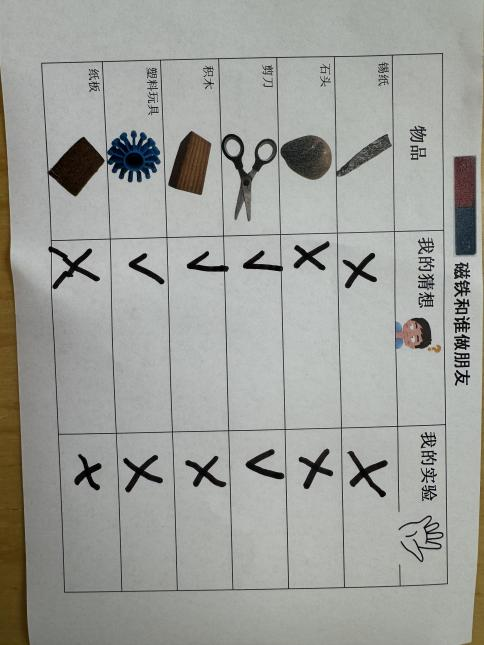 磁铁和谁做朋友
物品 我的猜想 我的实验
锡纸 × ×
石头 × ×
剪刀 √ √
积木 √ ×
塑料玩具 √ ×
纸板 × ×